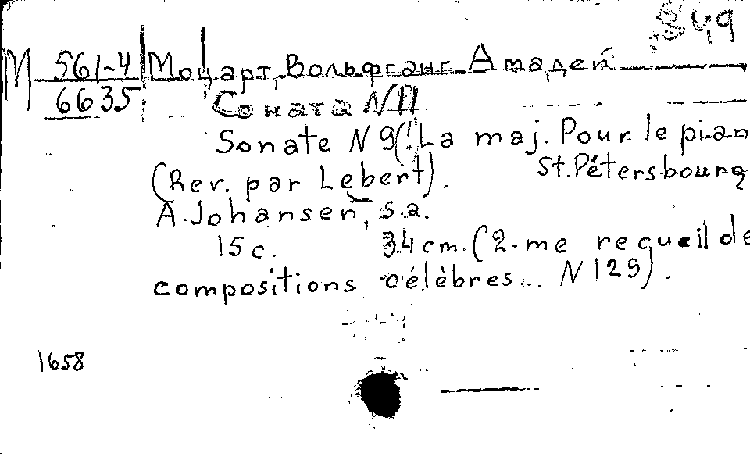 849
М 561-4 Моцарт, Вольфганг Амадей
6635 Соната N11
Sonate N 9(!La maj. Pour le pian
(Rev. par Lebert). St. Pétersbourg
A. Johansen, s.a.
15 c. 34 cm. (2-me recueil de
compositions célèbres... N 129).
1658